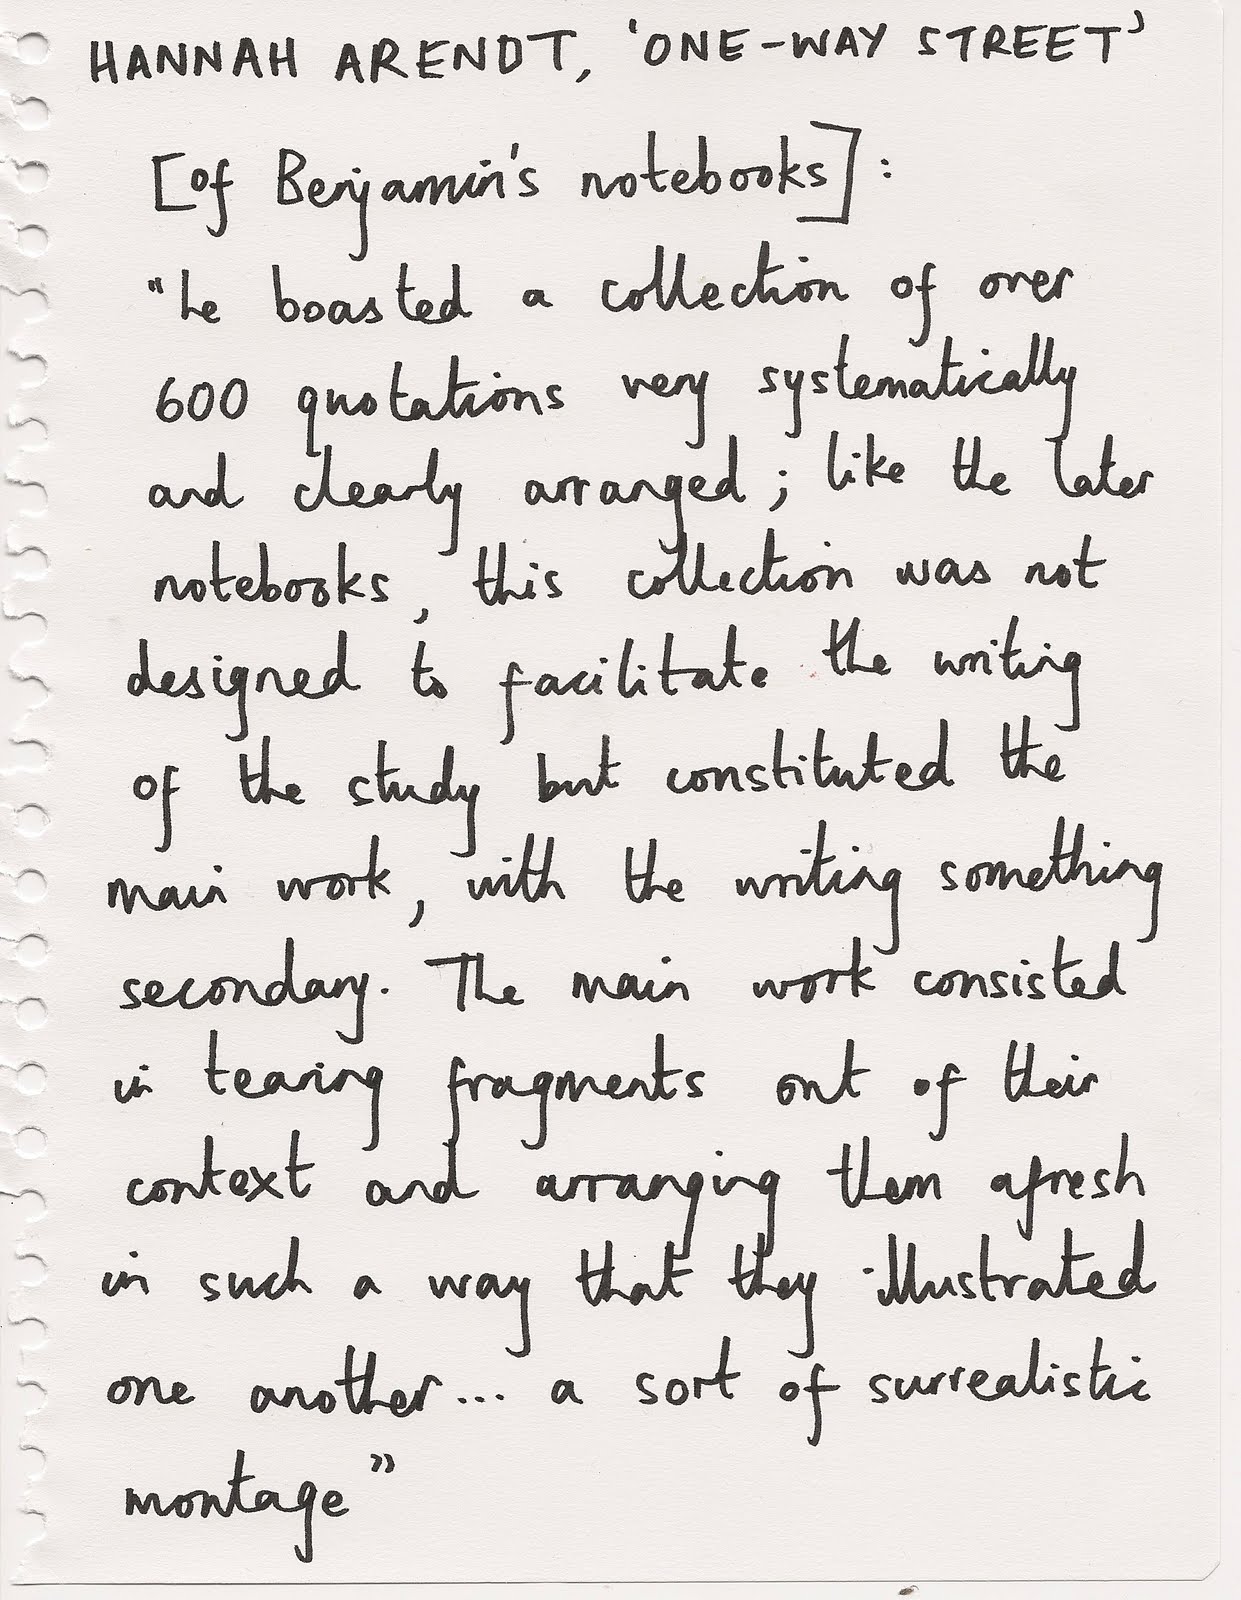 HANNAH ARENDT, 'ONE-WAY STREET'
[of Benjamin's notebooks]:
"he boasted a collection of over
600 quotations very systematically
and clearly arranged; like the later
notebooks, this collection was not
designed to facilitate the writing
of the study but constituted the
main work, with the writing something
secondary. The main work consisted
in tearing fragments out of their
context and arranging them afresh
in such a way that they illustrated
one another... a sort of surrealistic
montage"